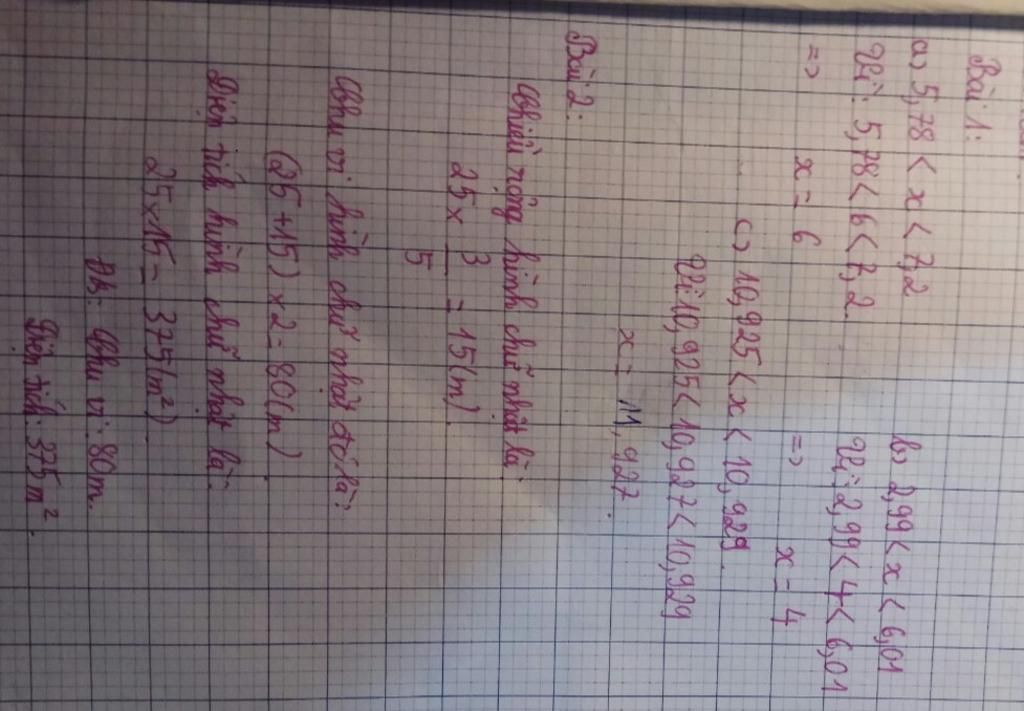 Bài 1:
a) 5,78 < x < 7,2
Vì: 5,78 < 6 < 7,2.
=> x = 6
b) 2,99 < x < 6,01
Vì: 2,99 < 4 < 6,01
=> x = 4
c) 10,925 < x < 10,929.
Vì: 10,925 < 10,927 < 10,929
x = 11,927.
Bài 2:
Chiều rộng hình chữ nhật là:
25 × 3/5 = 15(m)
Chu vi hình chữ nhật đó là:
(25 + 15) × 2 = 80(m)
Diện tích hình chữ nhật là:
25 × 15 = 375(m²)
Đs: Chu vi: 80m.
Diện tích: 375m².